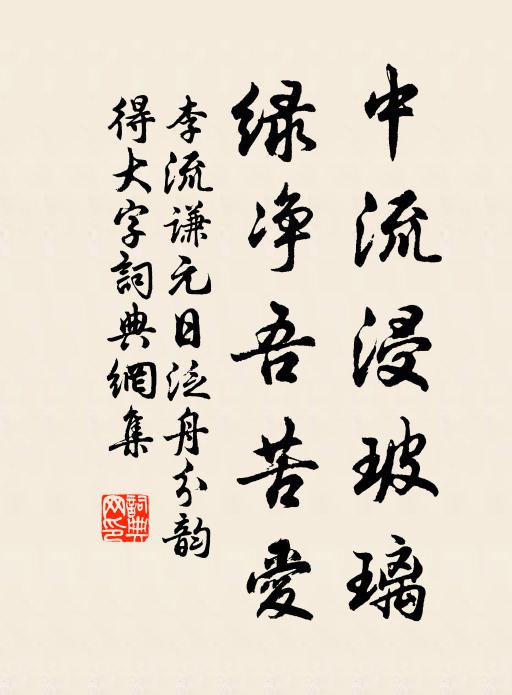 中流浸玻璃
绿净吾苦愛
李流谦元日泛舟分韵
得大字詞典網集
詞典
网印